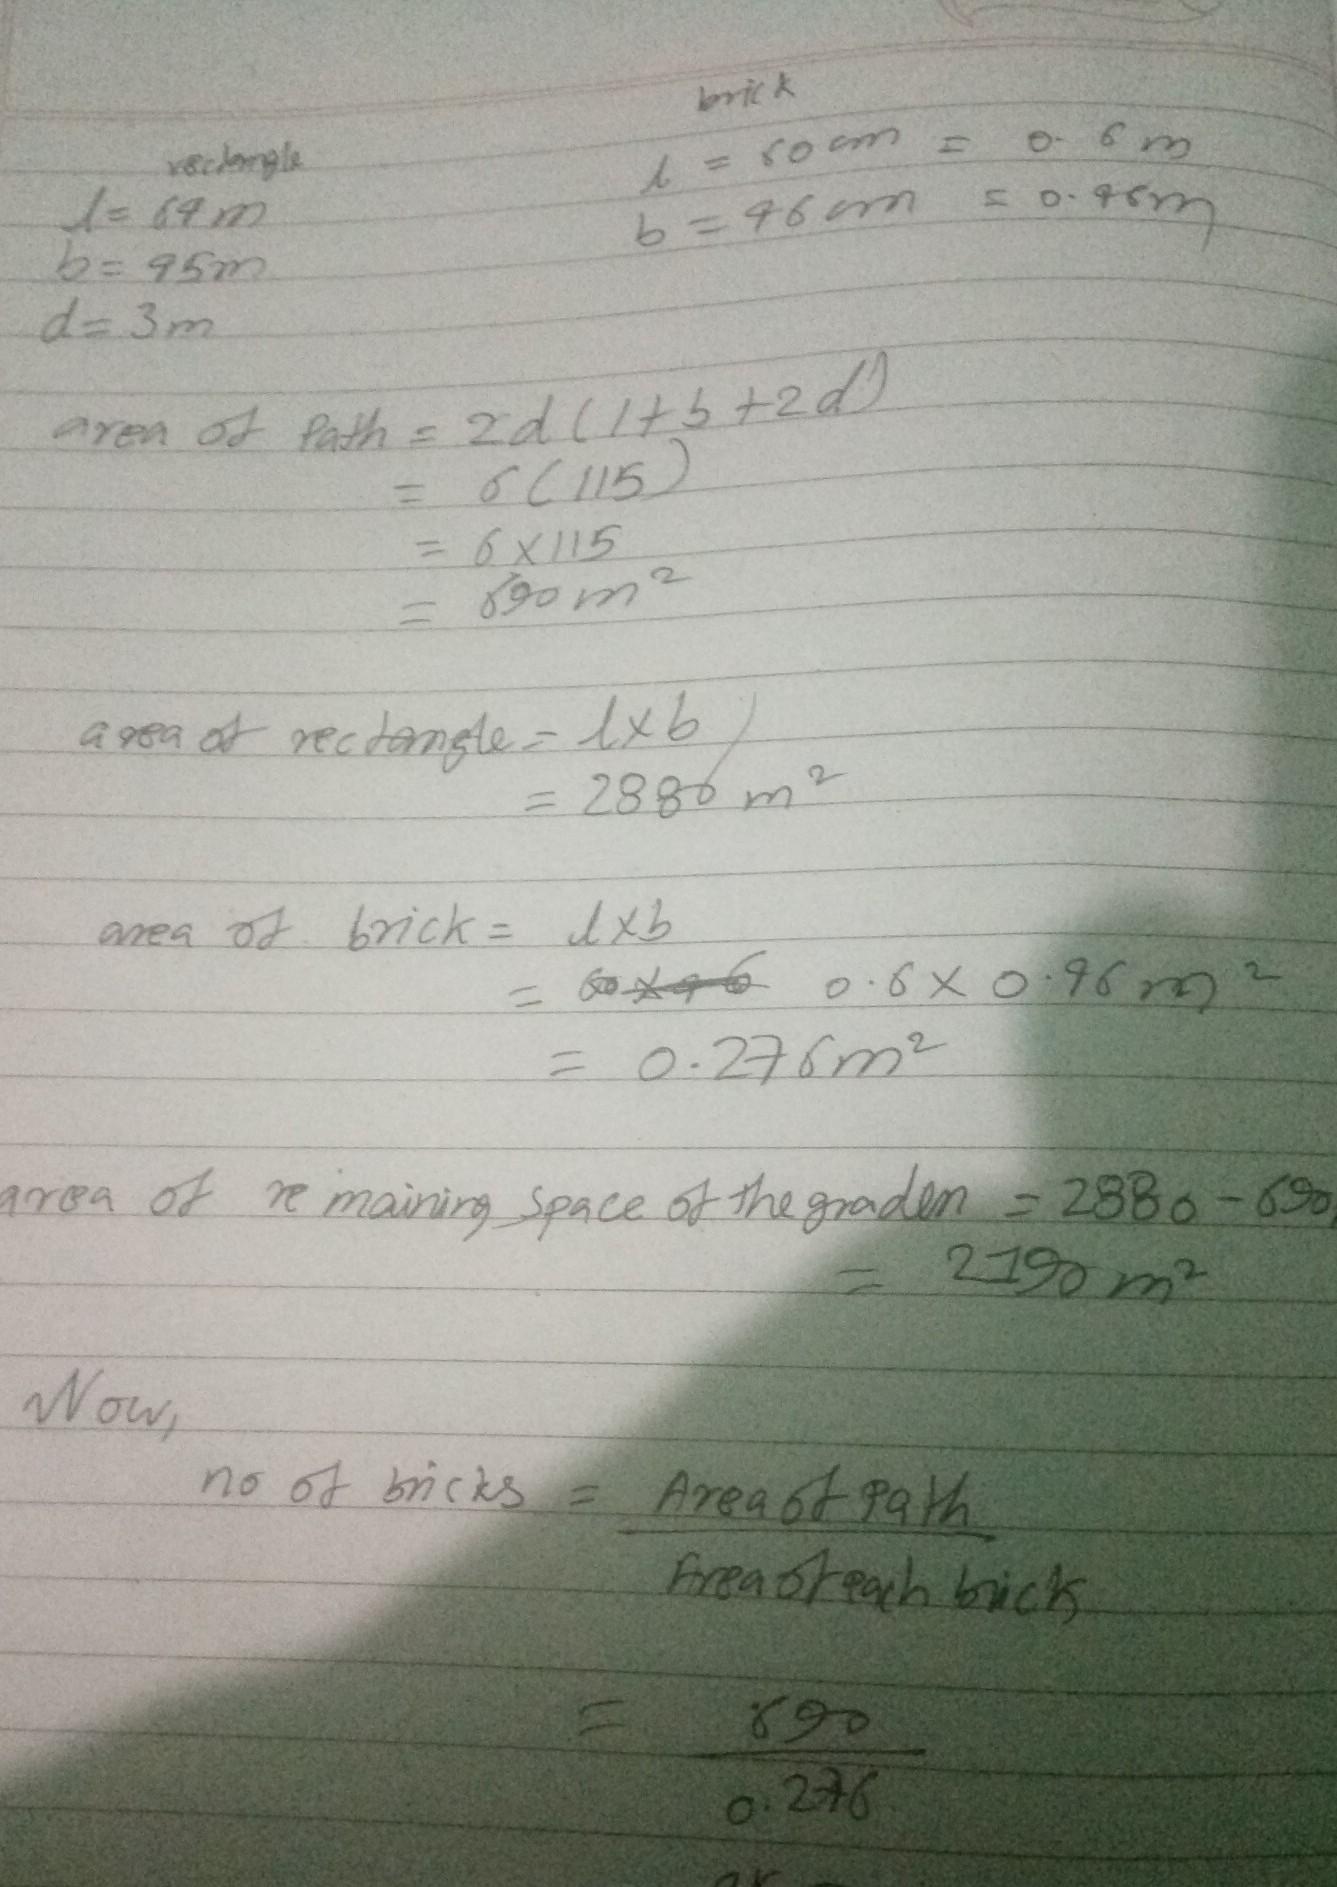 rectangle
l = 64m
b = 45m
d = 3m
brick
l = 60cm = 0.6m
b = 46cm = 0.46m
area of Path = 2d(l+b+2d)
= 6(115)
= 6×115
= 690m²
area of rectangle = l×b
= 2880 m²
area of brick = l×b
= 60×46 0.6×0.46m²
= 0.276m²
area of remaining space of the graden = 2880-690
= 2190 m²
Now,
no of bricks = Area of Path
Area of each brick
= 690
0.276